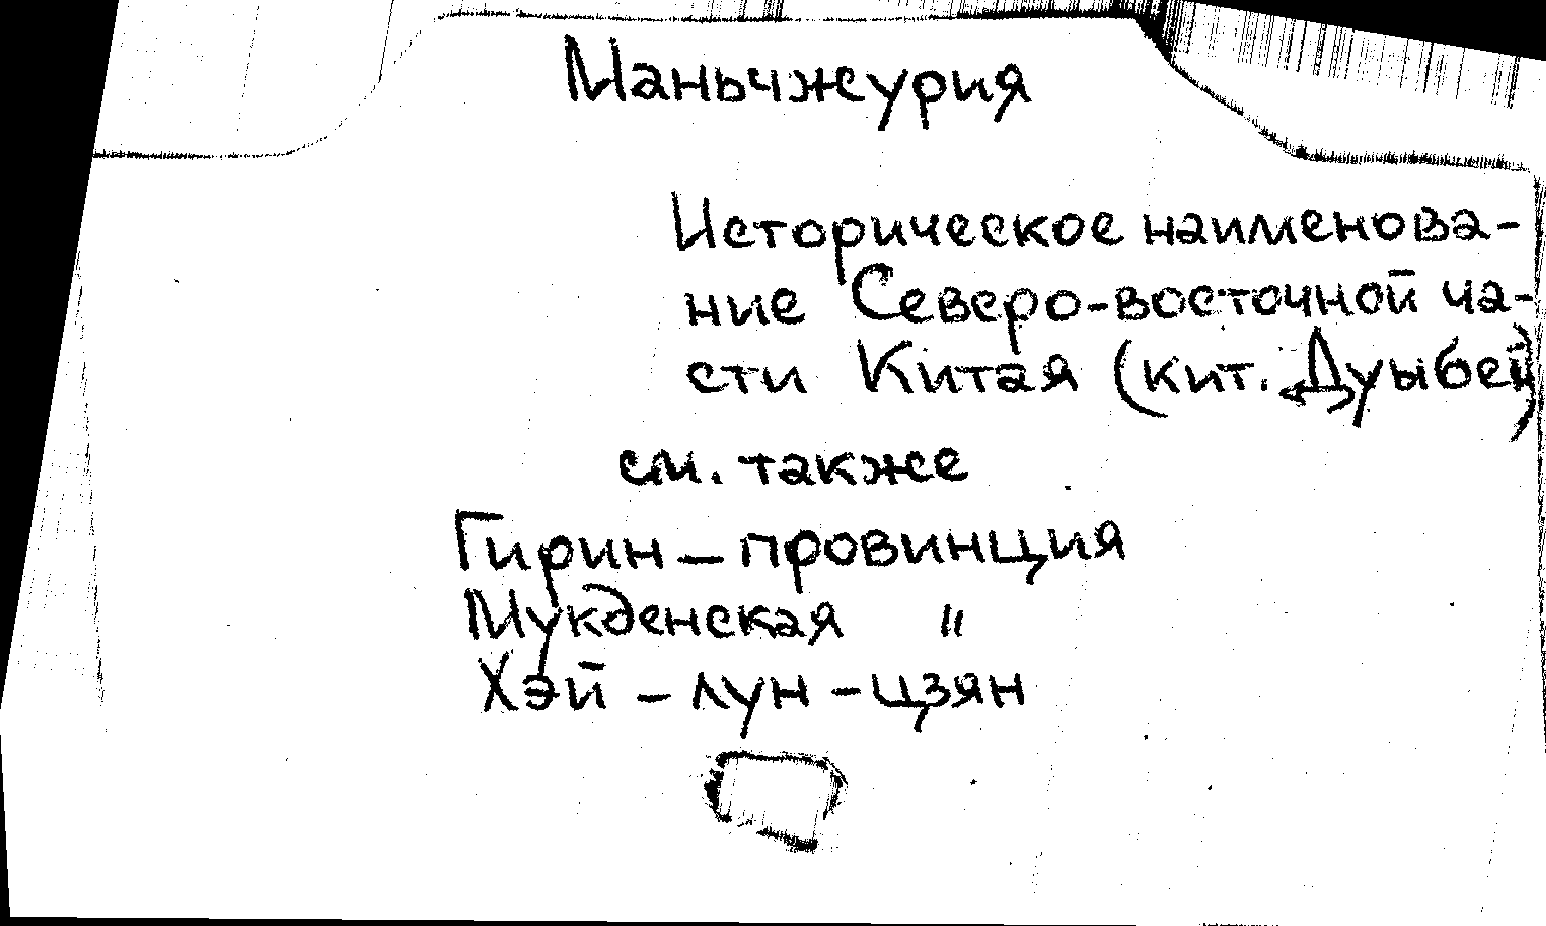 Маньчжурия
Историческое наименова-
ние Северо-восточной ча-
сти Китая (кит. Дуыбей)
см. также
Гирин – провинция
Мукденская "
Хэй – лун – цзян